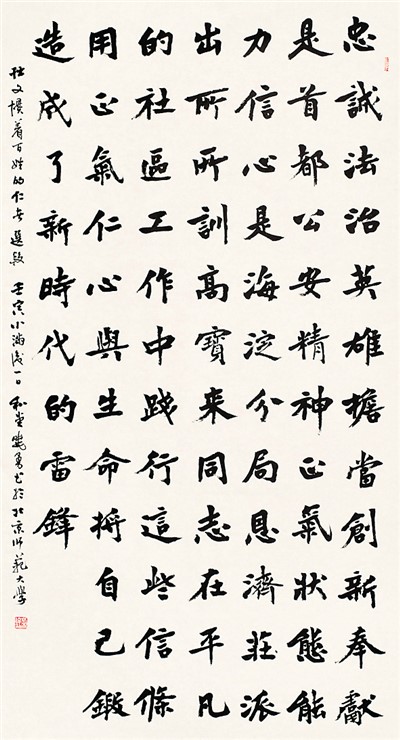 忠誠法治英雄擔當創新奉獻
是首都公安精神正氣狀態能
力信心是海淀分局恩濟莊派
出所所訓高寶来同志在平凡
的社區工作中踐行這些信條
用正氣仁心與生命將自己鍛
造成了新時代的雷鋒
杜文慣着百姓的仁者選段 壬寅小滿後一日 和堂 勇书於北京师範大學